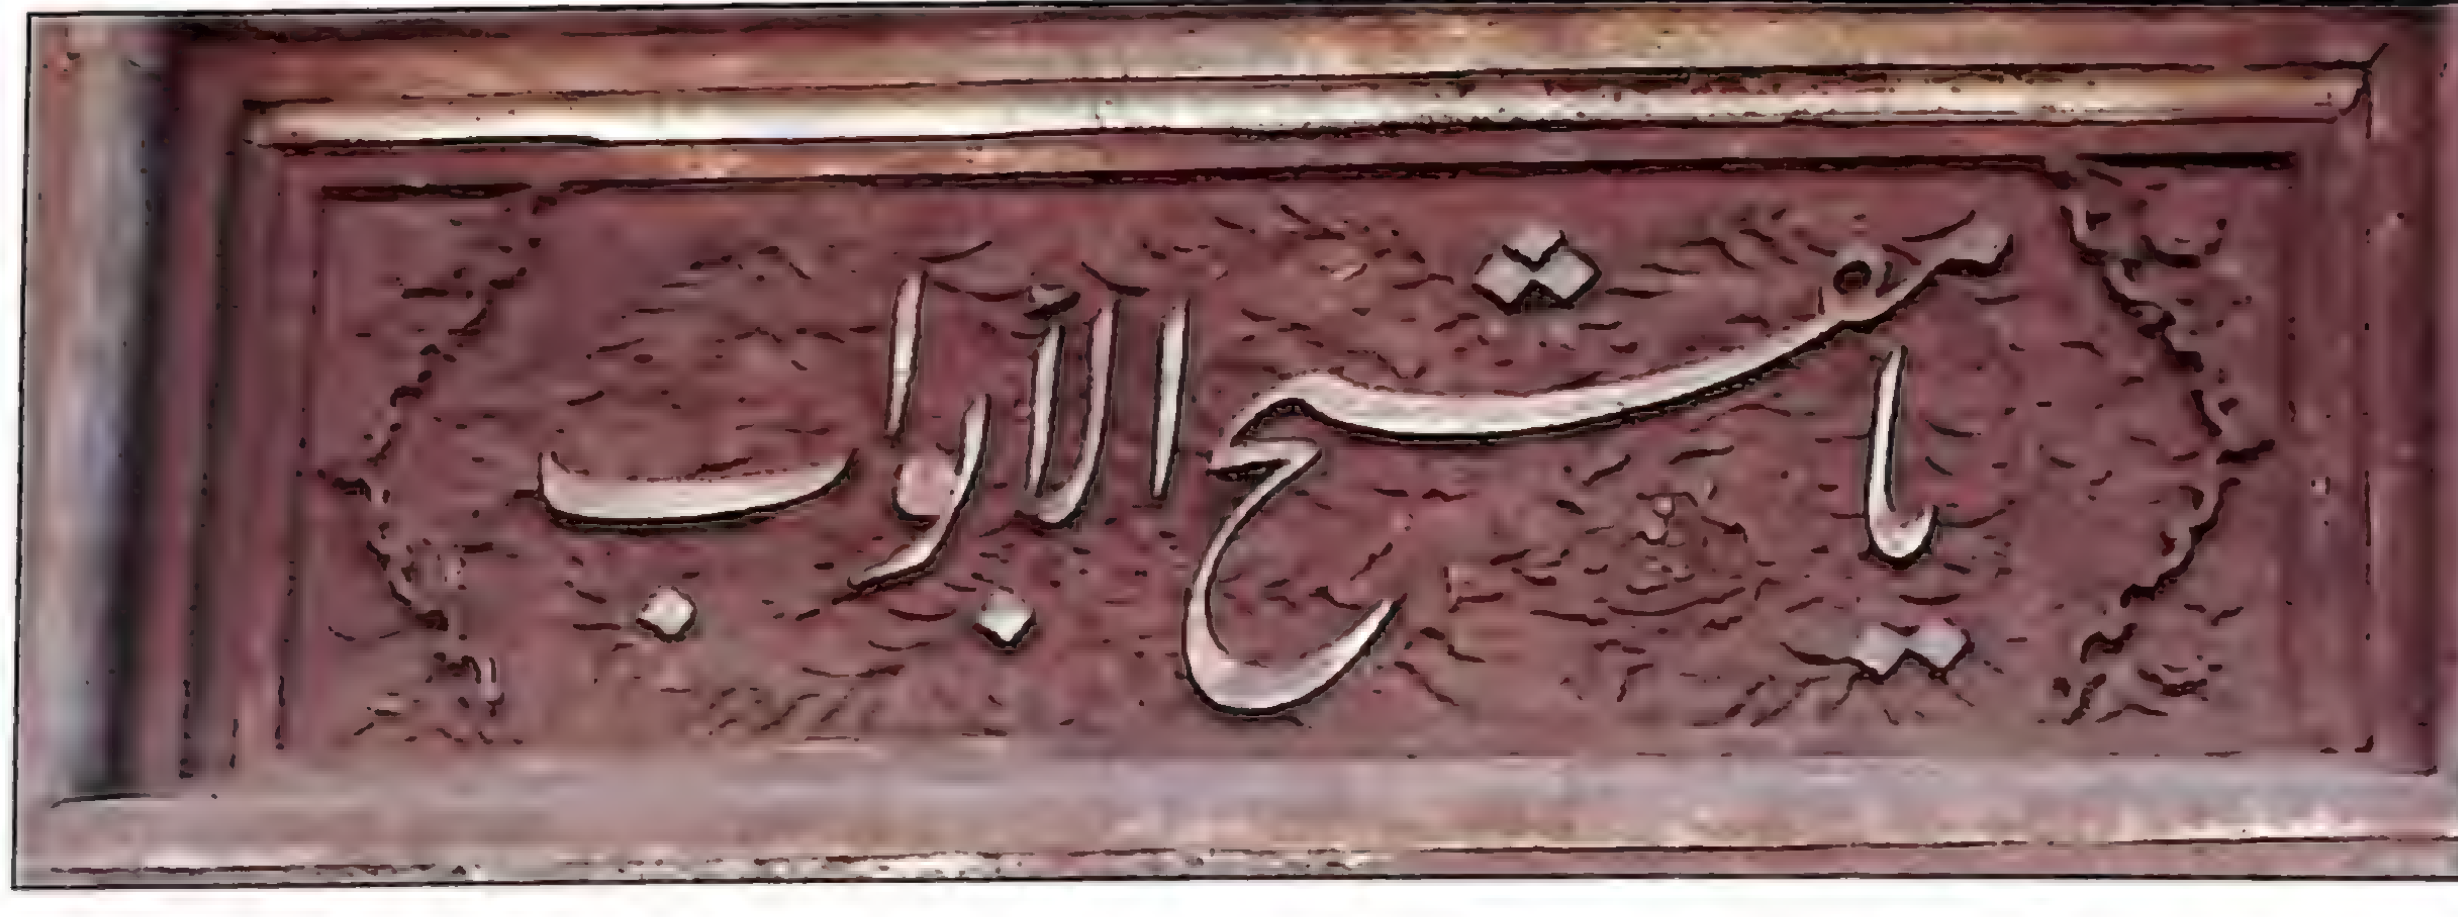 یا مفتح الابواب